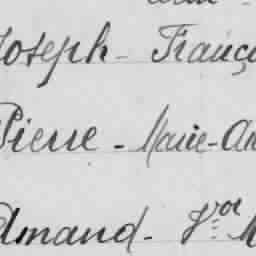 Joseph - Franço
Pierre - Marie-An
Amand - Vor M